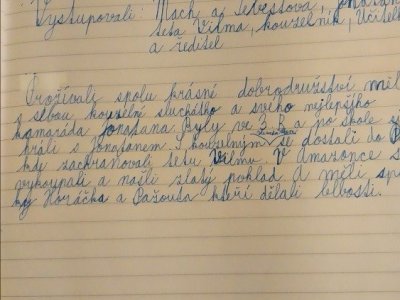 Vystupovali: Mach a Šebestová, Jonatan
teta Vilma, kouzelník, Učitelk
a ředitel
Prožívali spolu krásné dobrodružství měl
s sebou kouzelné sluchátko a svého nejlepšího
kamaráda Jonatana Byly ve 3. B a po škole s
hráli s Jonatanem. S kouzelným se dostali do
kde zachraňovali tetu Vilmu. V amazonce s
vykoupali a našli zlatý poklad a měli sp
ky Horáčka a Pažouta kteří dělali blbosti.